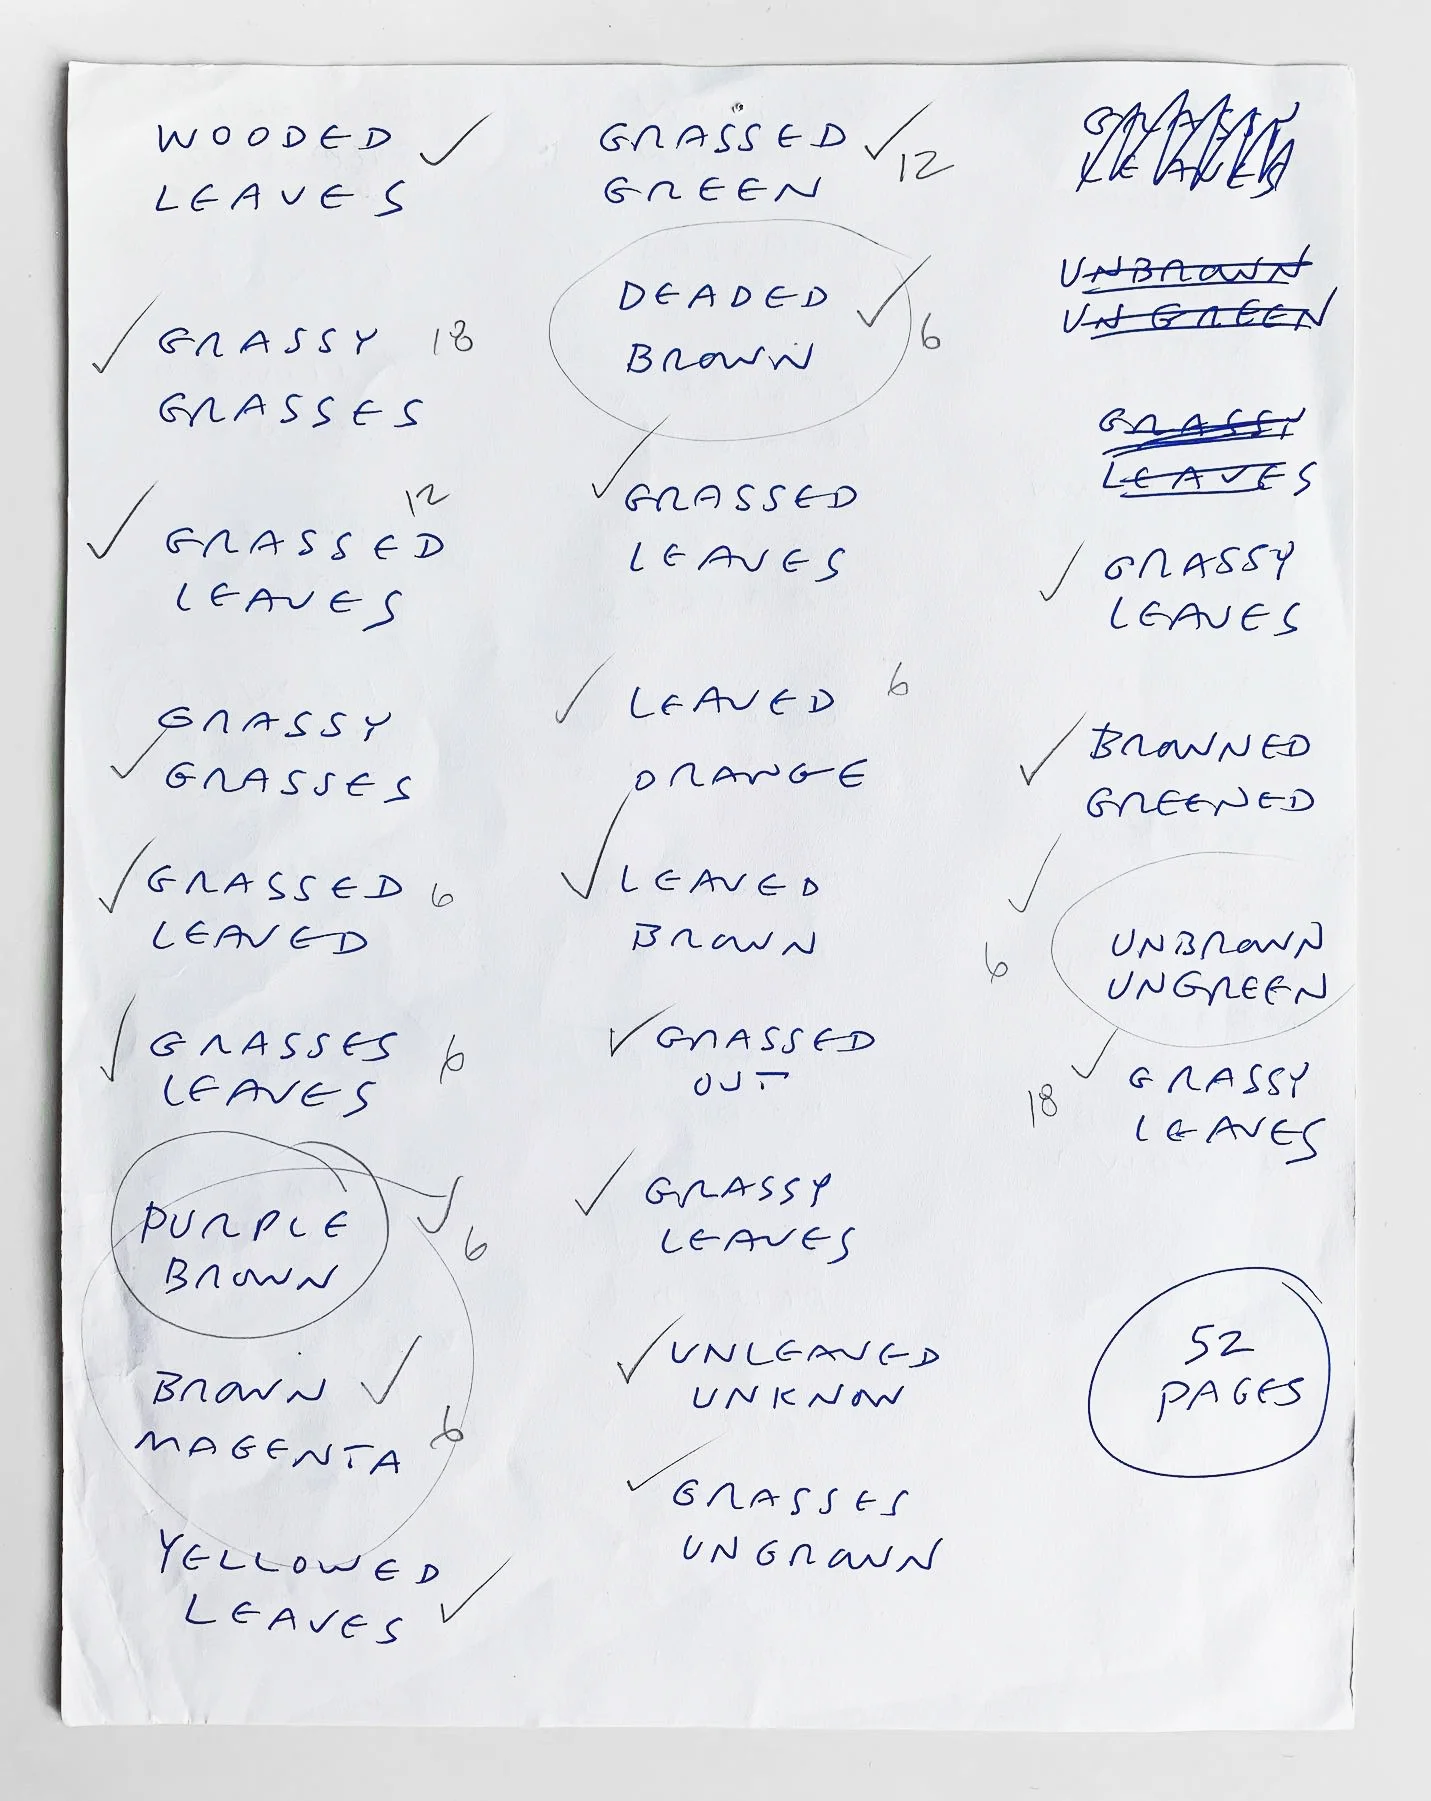 WOODED
LEAVES
GRASSY 18
GRASSES
12
GRASSED
LEAVES
GRASSY
GRASSES
GRASSED 6
LEAVED
GRASSES 6
LEAVES
PURPLE
BROWN 6
BROWN
MAGENTA 6
YELLOWED
LEAVES
GRASSED 12
GREEN
DEADED
BROWN 6
GRASSED
LEAVES
LEAVED 6
ORANGE
LEAVED
BROWN
GRASSED
OUT
GRASSY
LEAVES
UNLEAVED
UNKNOW
GRASSES
UNGROWN
LEAVES
UNBROWN
UNGREEN
GRASSY
LEAVES
GRASSY
LEAVES
BROWNED
GREENED
6 UNBROWN
UNGREEN
18 GRASSY
LEAVES
52
PAGES